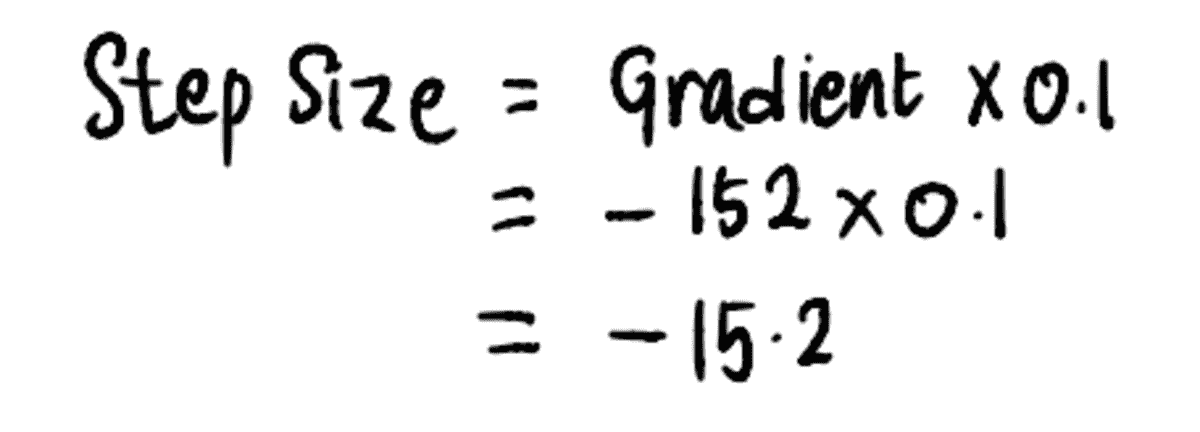 Step Size = Gradient x 0.1
= - 152 x 0.1
= - 15.2